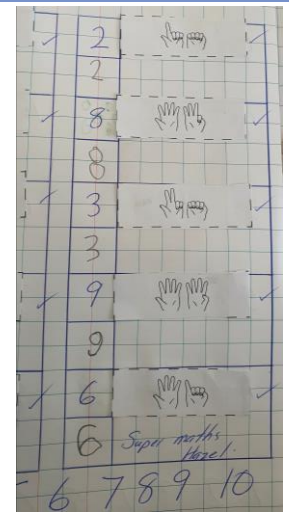 2
2
8
8
3
3
9
9
6
6 Super maths
Hazel.
6 7 8 9 10